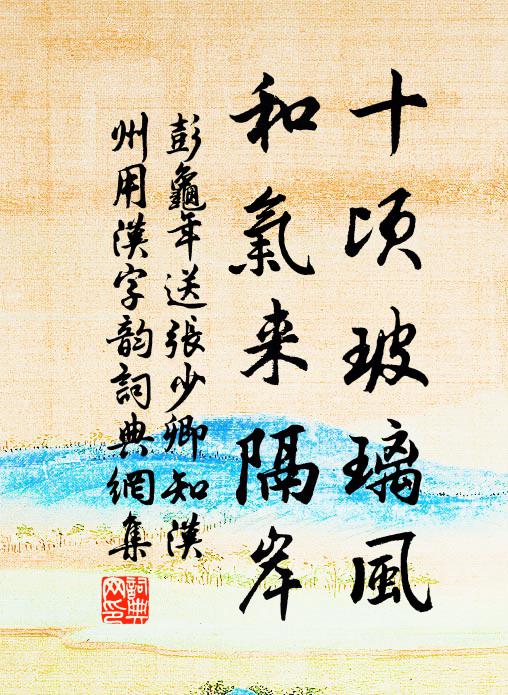 十頃玻璃風
和氣来隔岸
彭龜年送張少卿知漢
州用漢字韵詞典網集
詞典網印